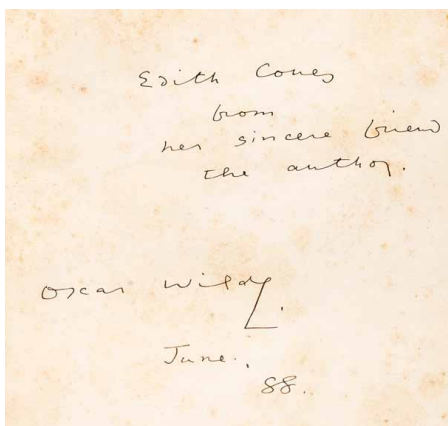 Edith Coues
from
her sincere friend
the author.
Oscar Wilde
June.
88.